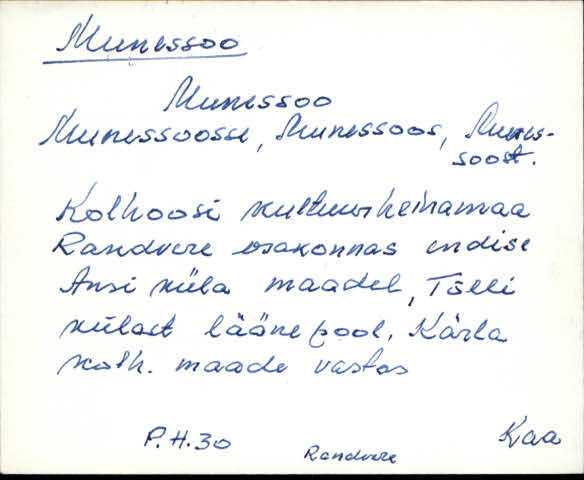 Munessoo
Munessoo
Munessoosse, Munessoos, Munes-
soost.
Kolhoosi kultuurheinamaa
Randvere osakonnas endise
Ansi küla maadel, Tõlli
külast lääne pool, Kärla
kolh. maade vastas
P.H.30
Randvere
Kaa